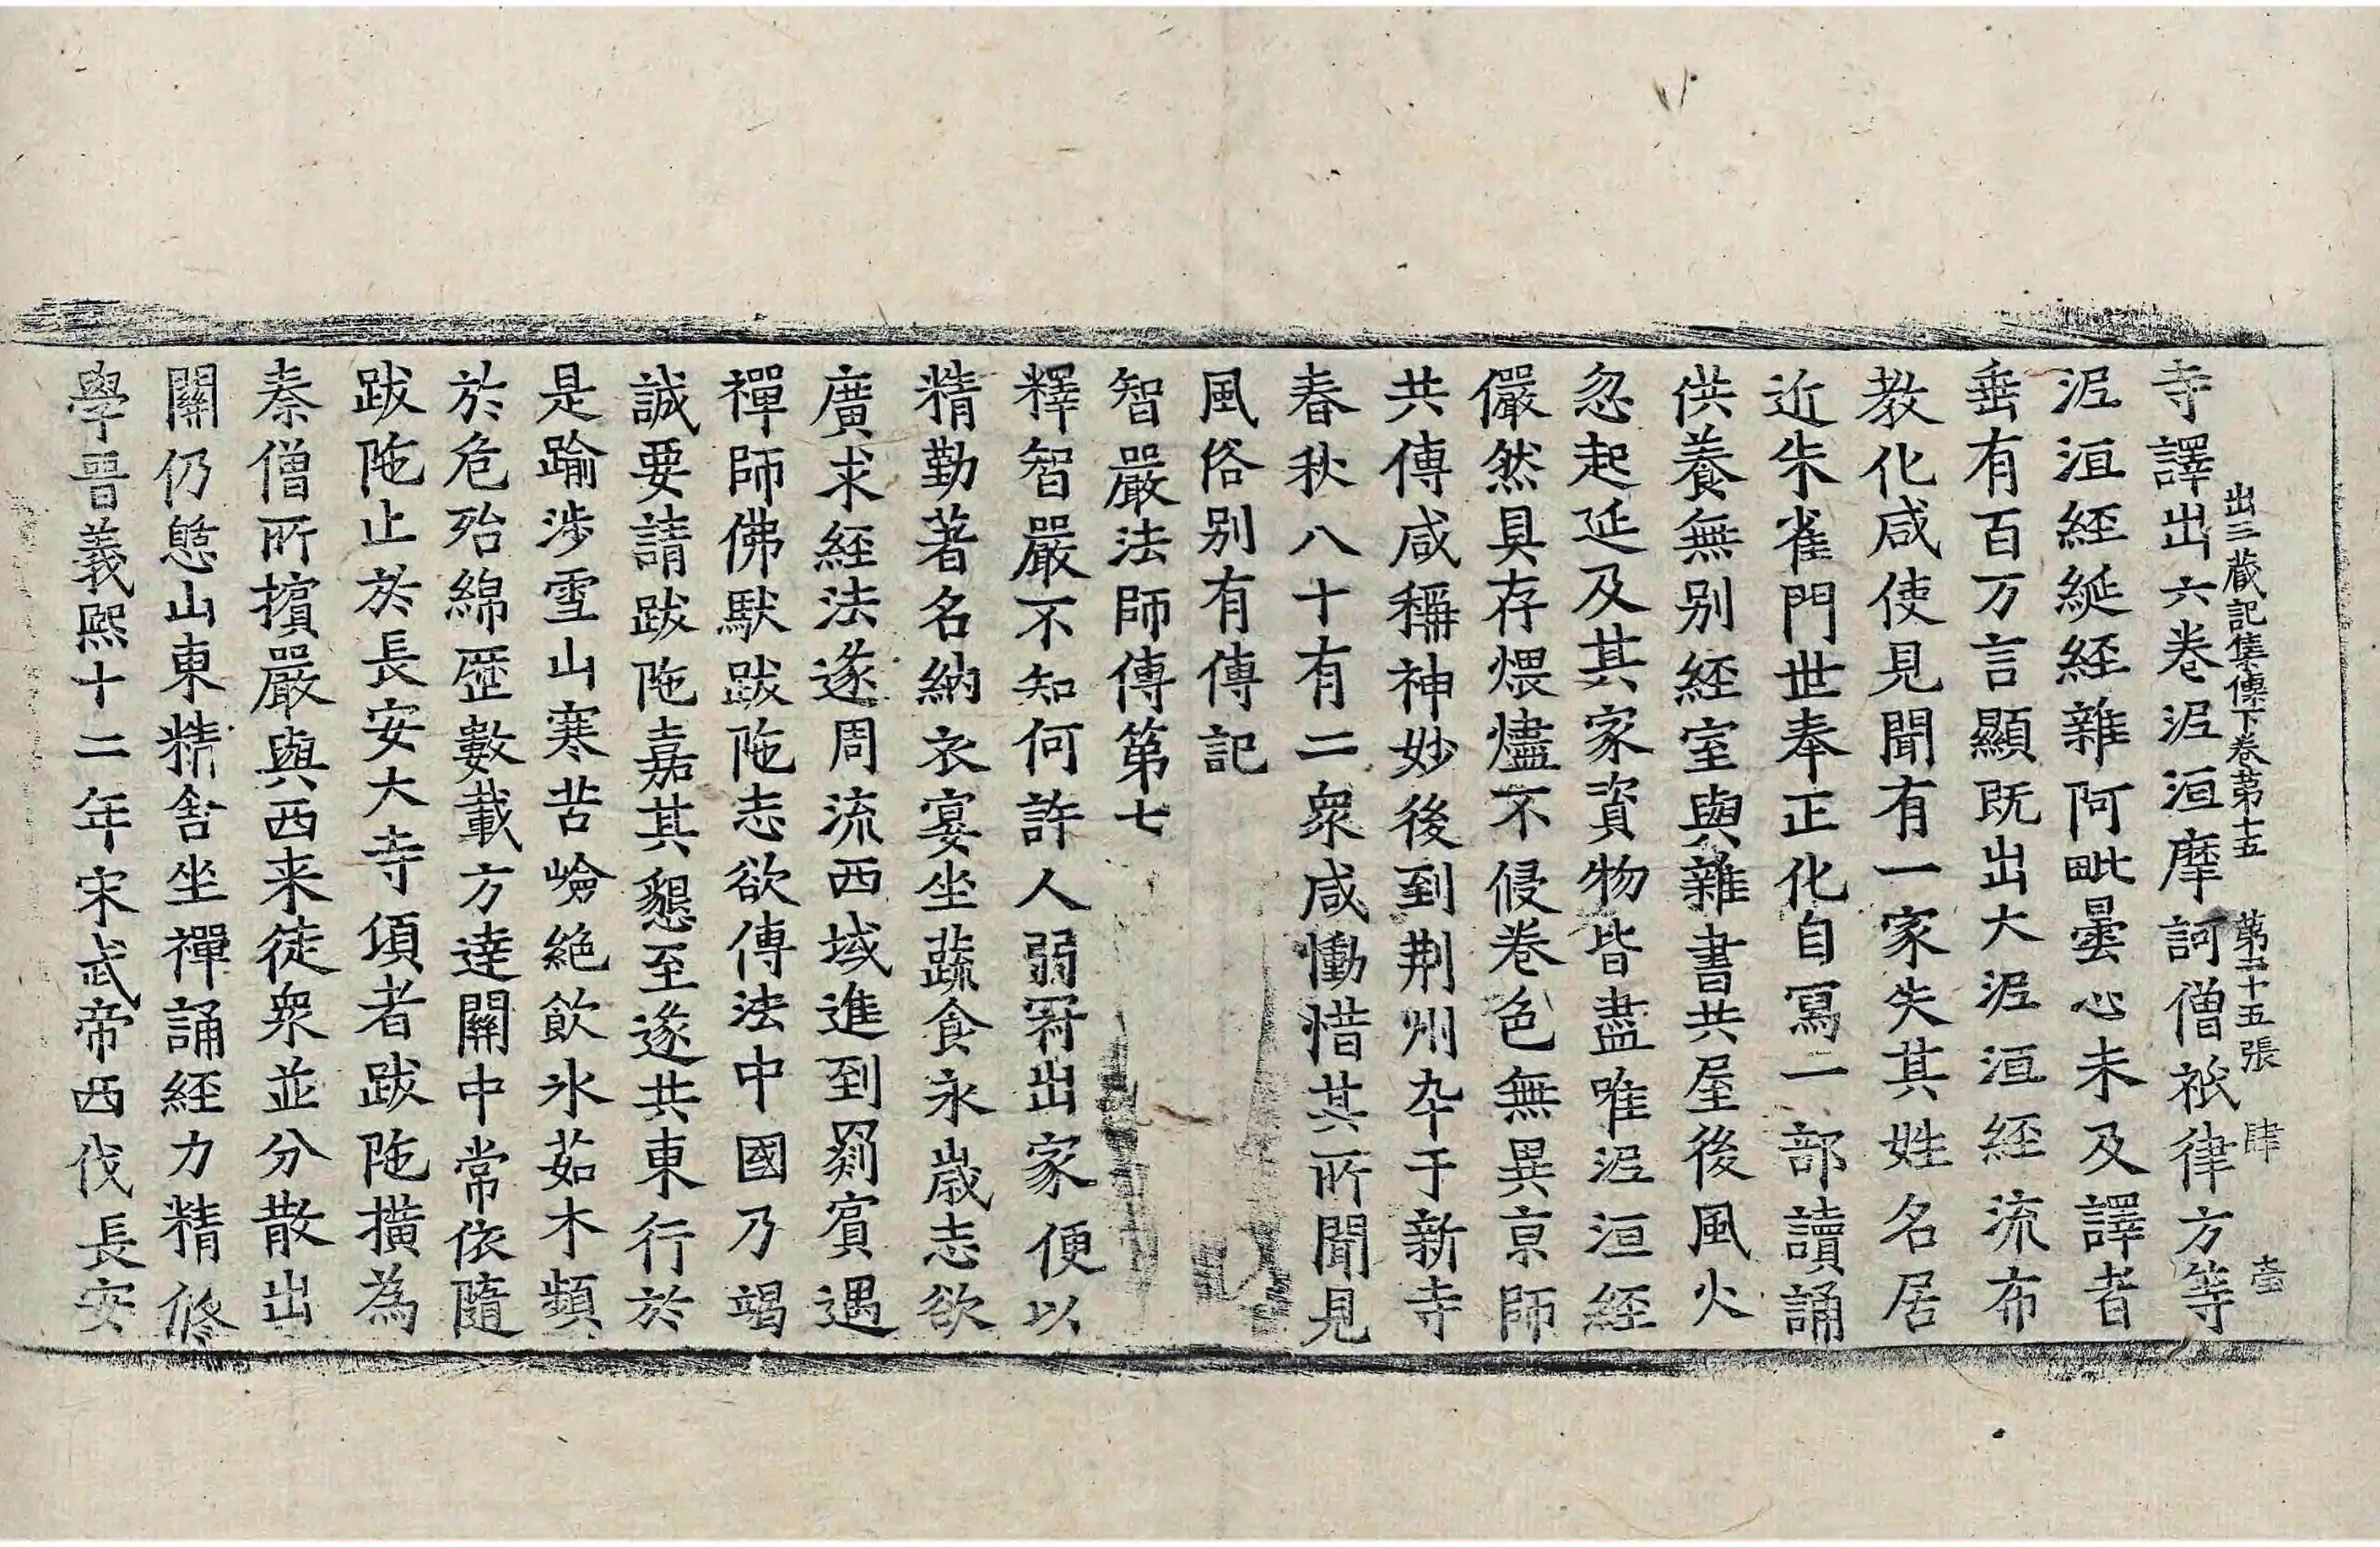 出三藏記集傳下卷第十五 第二十五張 肆 壹
寺譯出六卷泥洹摩訶僧祇律方等
泥洹經綖經雜阿毗曇心未及譯者
垂有百万言顯既出大泥洹經流布
教化咸使見聞有一家失其姓名居
近朱雀門世奉正化自寫一部讀誦
供養無別經室與雜書共屋後風火
忽起延及其家資物皆盡唯泥洹經
儼然具存煨燼不侵卷色無異京師
共傳咸稱神妙後到荆州卒于新寺
春秋八十有二衆咸慟惜其所聞見
風俗別有傳記
智嚴法師傳第七
釋智嚴不知何許人弱冠出家便以
精勤著名納衣宴坐蔬食永歲志欲
廣求經法遂周流西域進到罽賓遇
禪師佛馱跋陁志欲傳法中國乃竭
誠要請跋陁嘉其懇至遂共東行於
是踰涉雪山寒苦嶮絕飲氷茹木頻
於危殆綿歷數載方達關中常依隨
跋陁止於長安大寺頃者跋陁擴為
秦僧所擯嚴與西来徒衆並分散出
關仍憇山東精舍坐禪誦經力精修
學晉義熙十二年宋武帝西伐長安